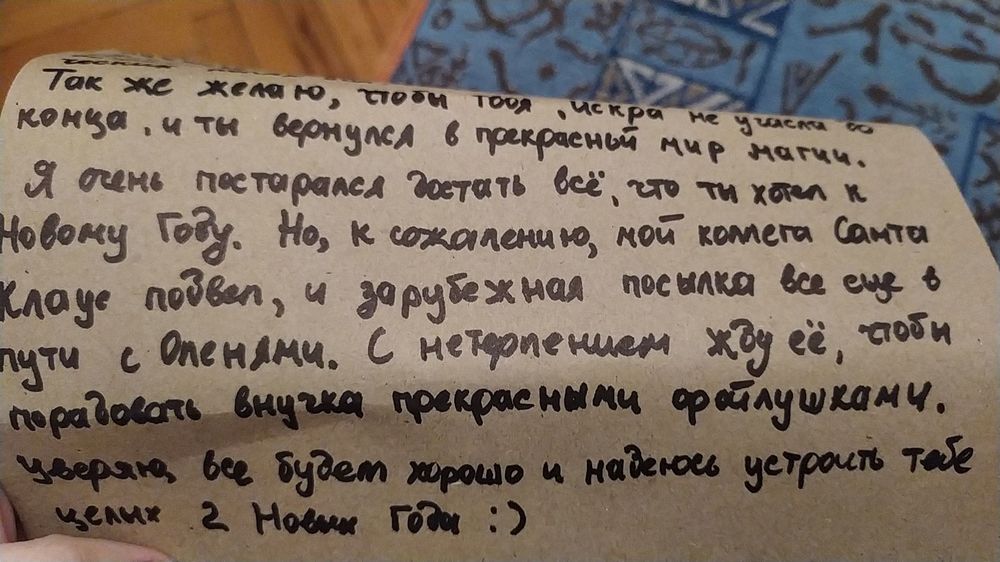 Так же желаю, чтобы твоя искра не угасла до
конца, и ты вернулся в прекрасный мир магии.
Я очень постарался достать всё, что ты хотел к
Новому Году. Но, к сожалению, мой коллега Санта
Клаус подвел, и зарубежная посылка все еще в
пути с Оленями. С нетерпением жду её, чтобы
порадовать внучка прекрасными фойлушками.
уверяю, все будет хорошо и надеюсь устроить тебе
целых 2 Новых Года :)